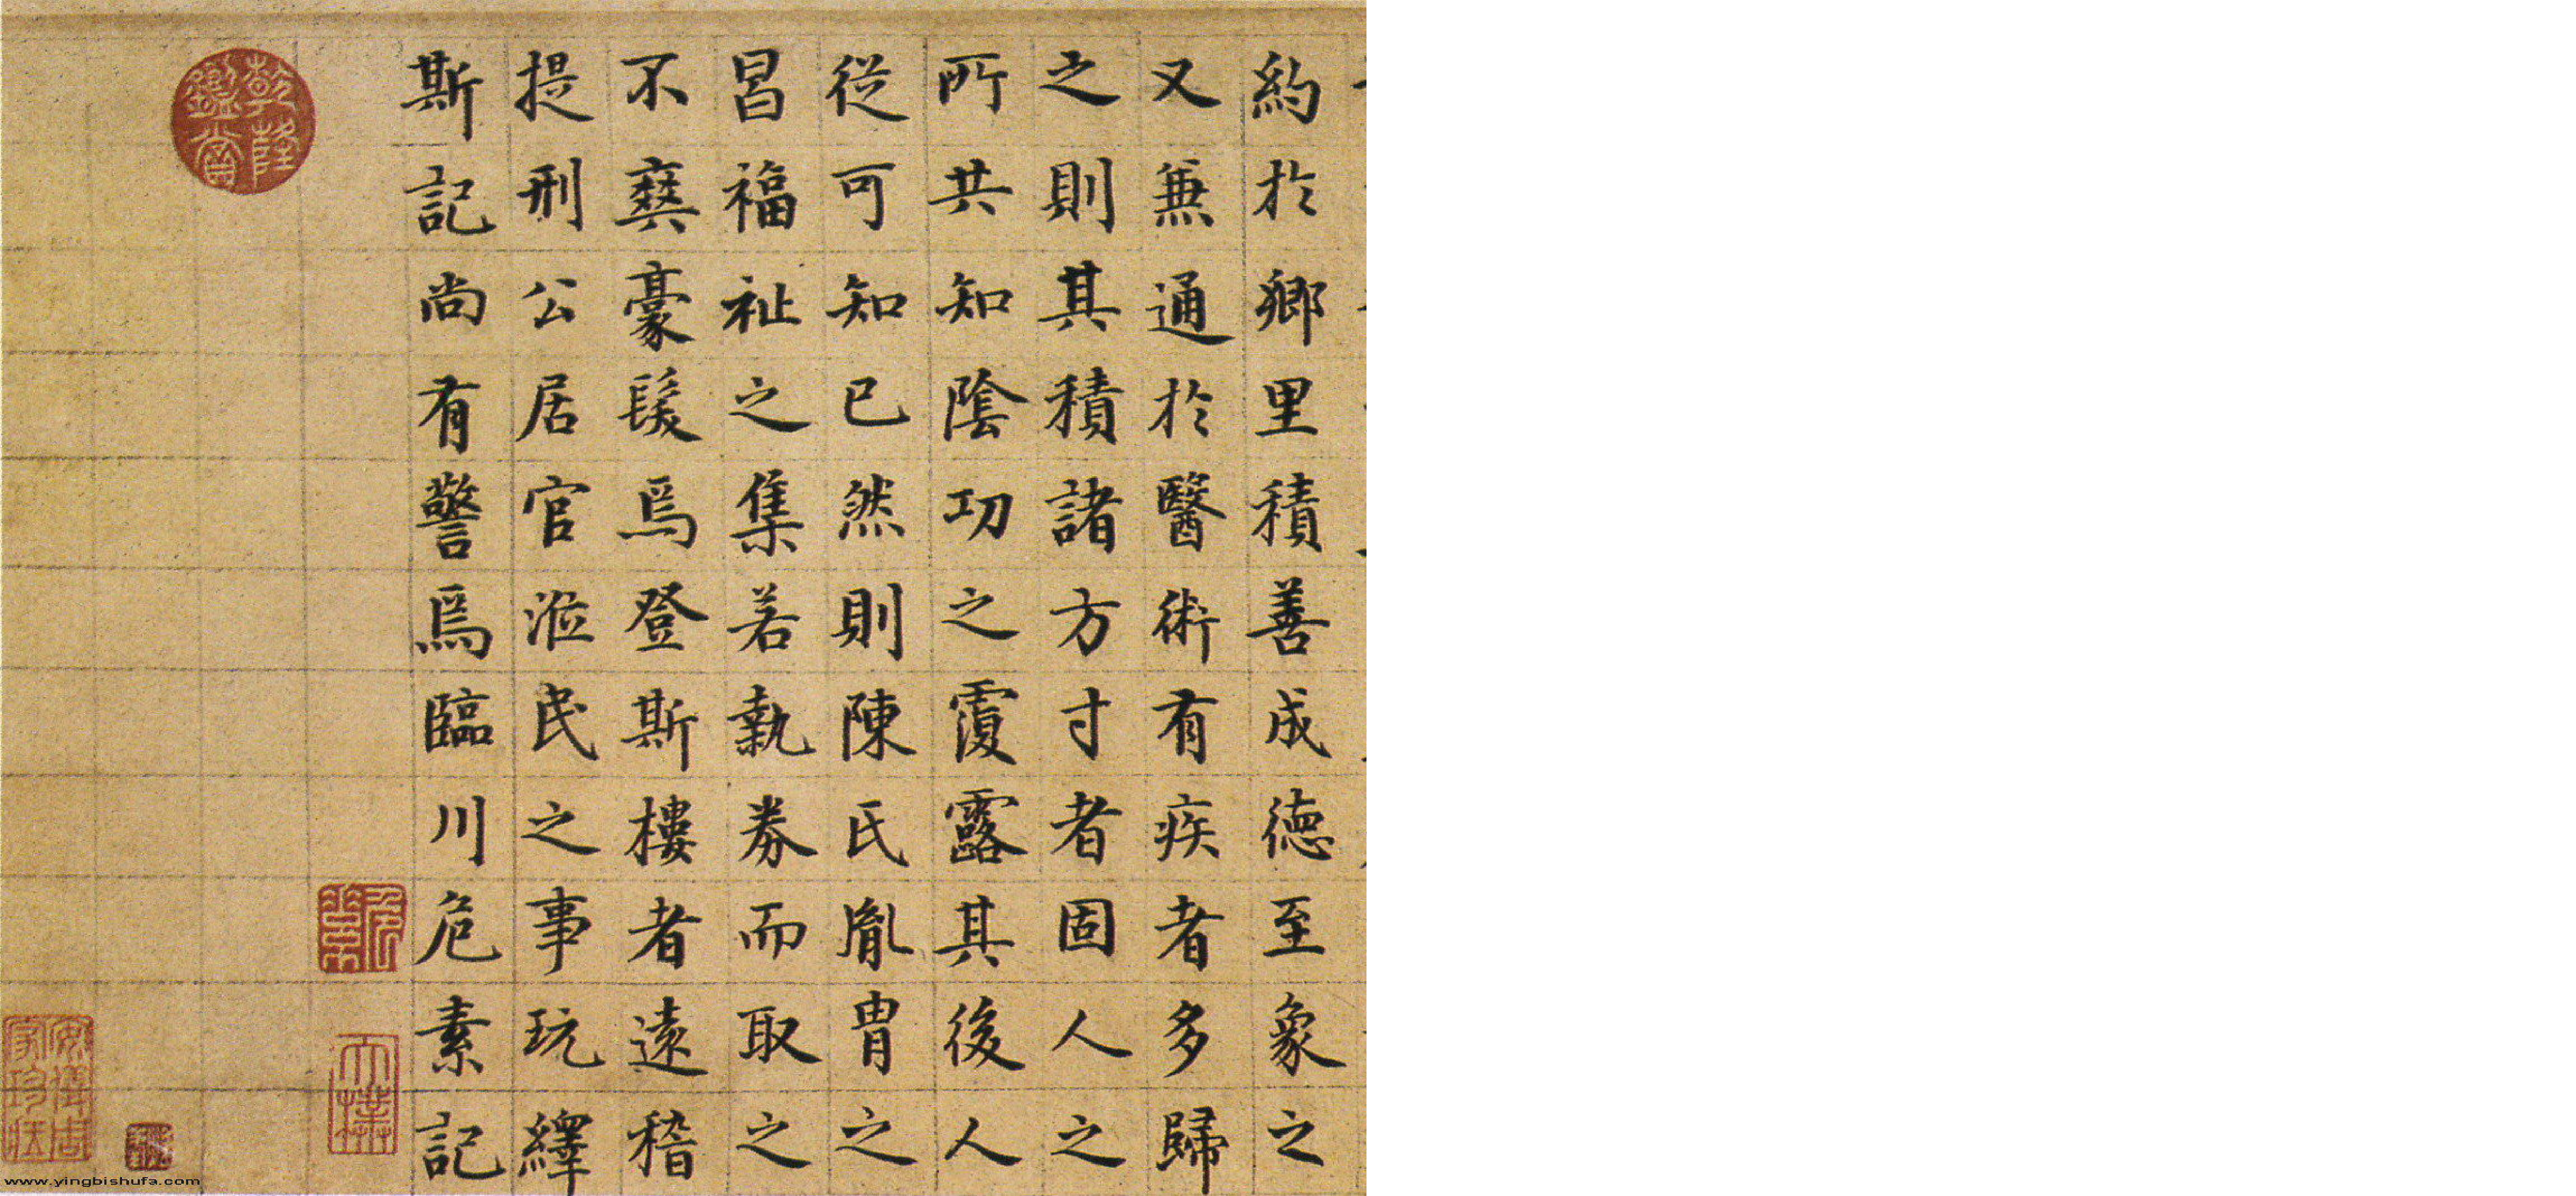 約於鄉里積善成德至象之
又兼通於醫術有疾者多歸
之則其積諸方寸者固人之
所共知陰功之覆露其後人
從可知已然則陳氏胤胄之
昌福祉之集若執券而取之
不爽豪髮焉登斯樓者遠稽
提刑公居官涖民之事玩繹
斯記尚有警焉臨川危素記
乾隆鑑賞
安儀周家珍藏
www.yingbishufa.com